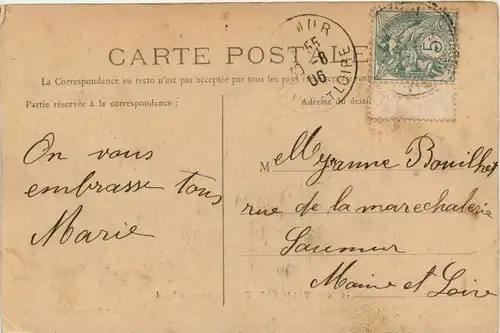 CARTE POSTALE
La Correspondance au recto n'est pas acceptée par tous les pays
Partie réservée à la correspondance :
Adresse du
On vous
embrasse tous
Marie
M
Jeanne Bouilhet
rue de la marechalerie
Saumur
Maine et Loire
5
55
06
ET LOIRE